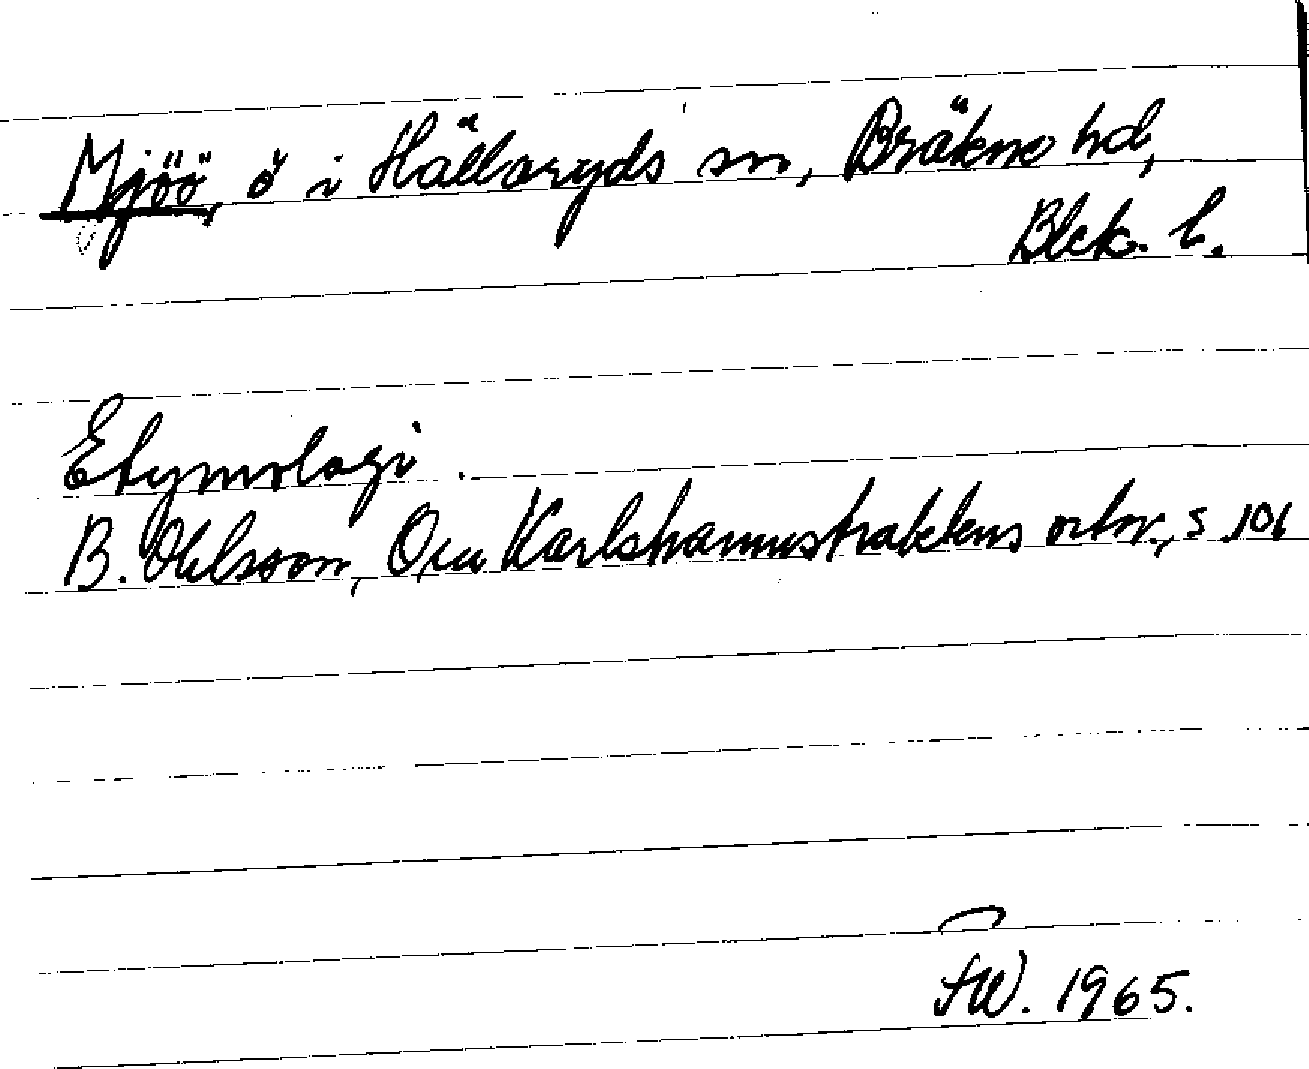 Mjöö, ö i Hällaryds sn, Bräkne hd,
Blek. l.
Etymologi.
B. Ohlsson, Om Karlshamnstraktens ortn., s 101
FW. 1965.